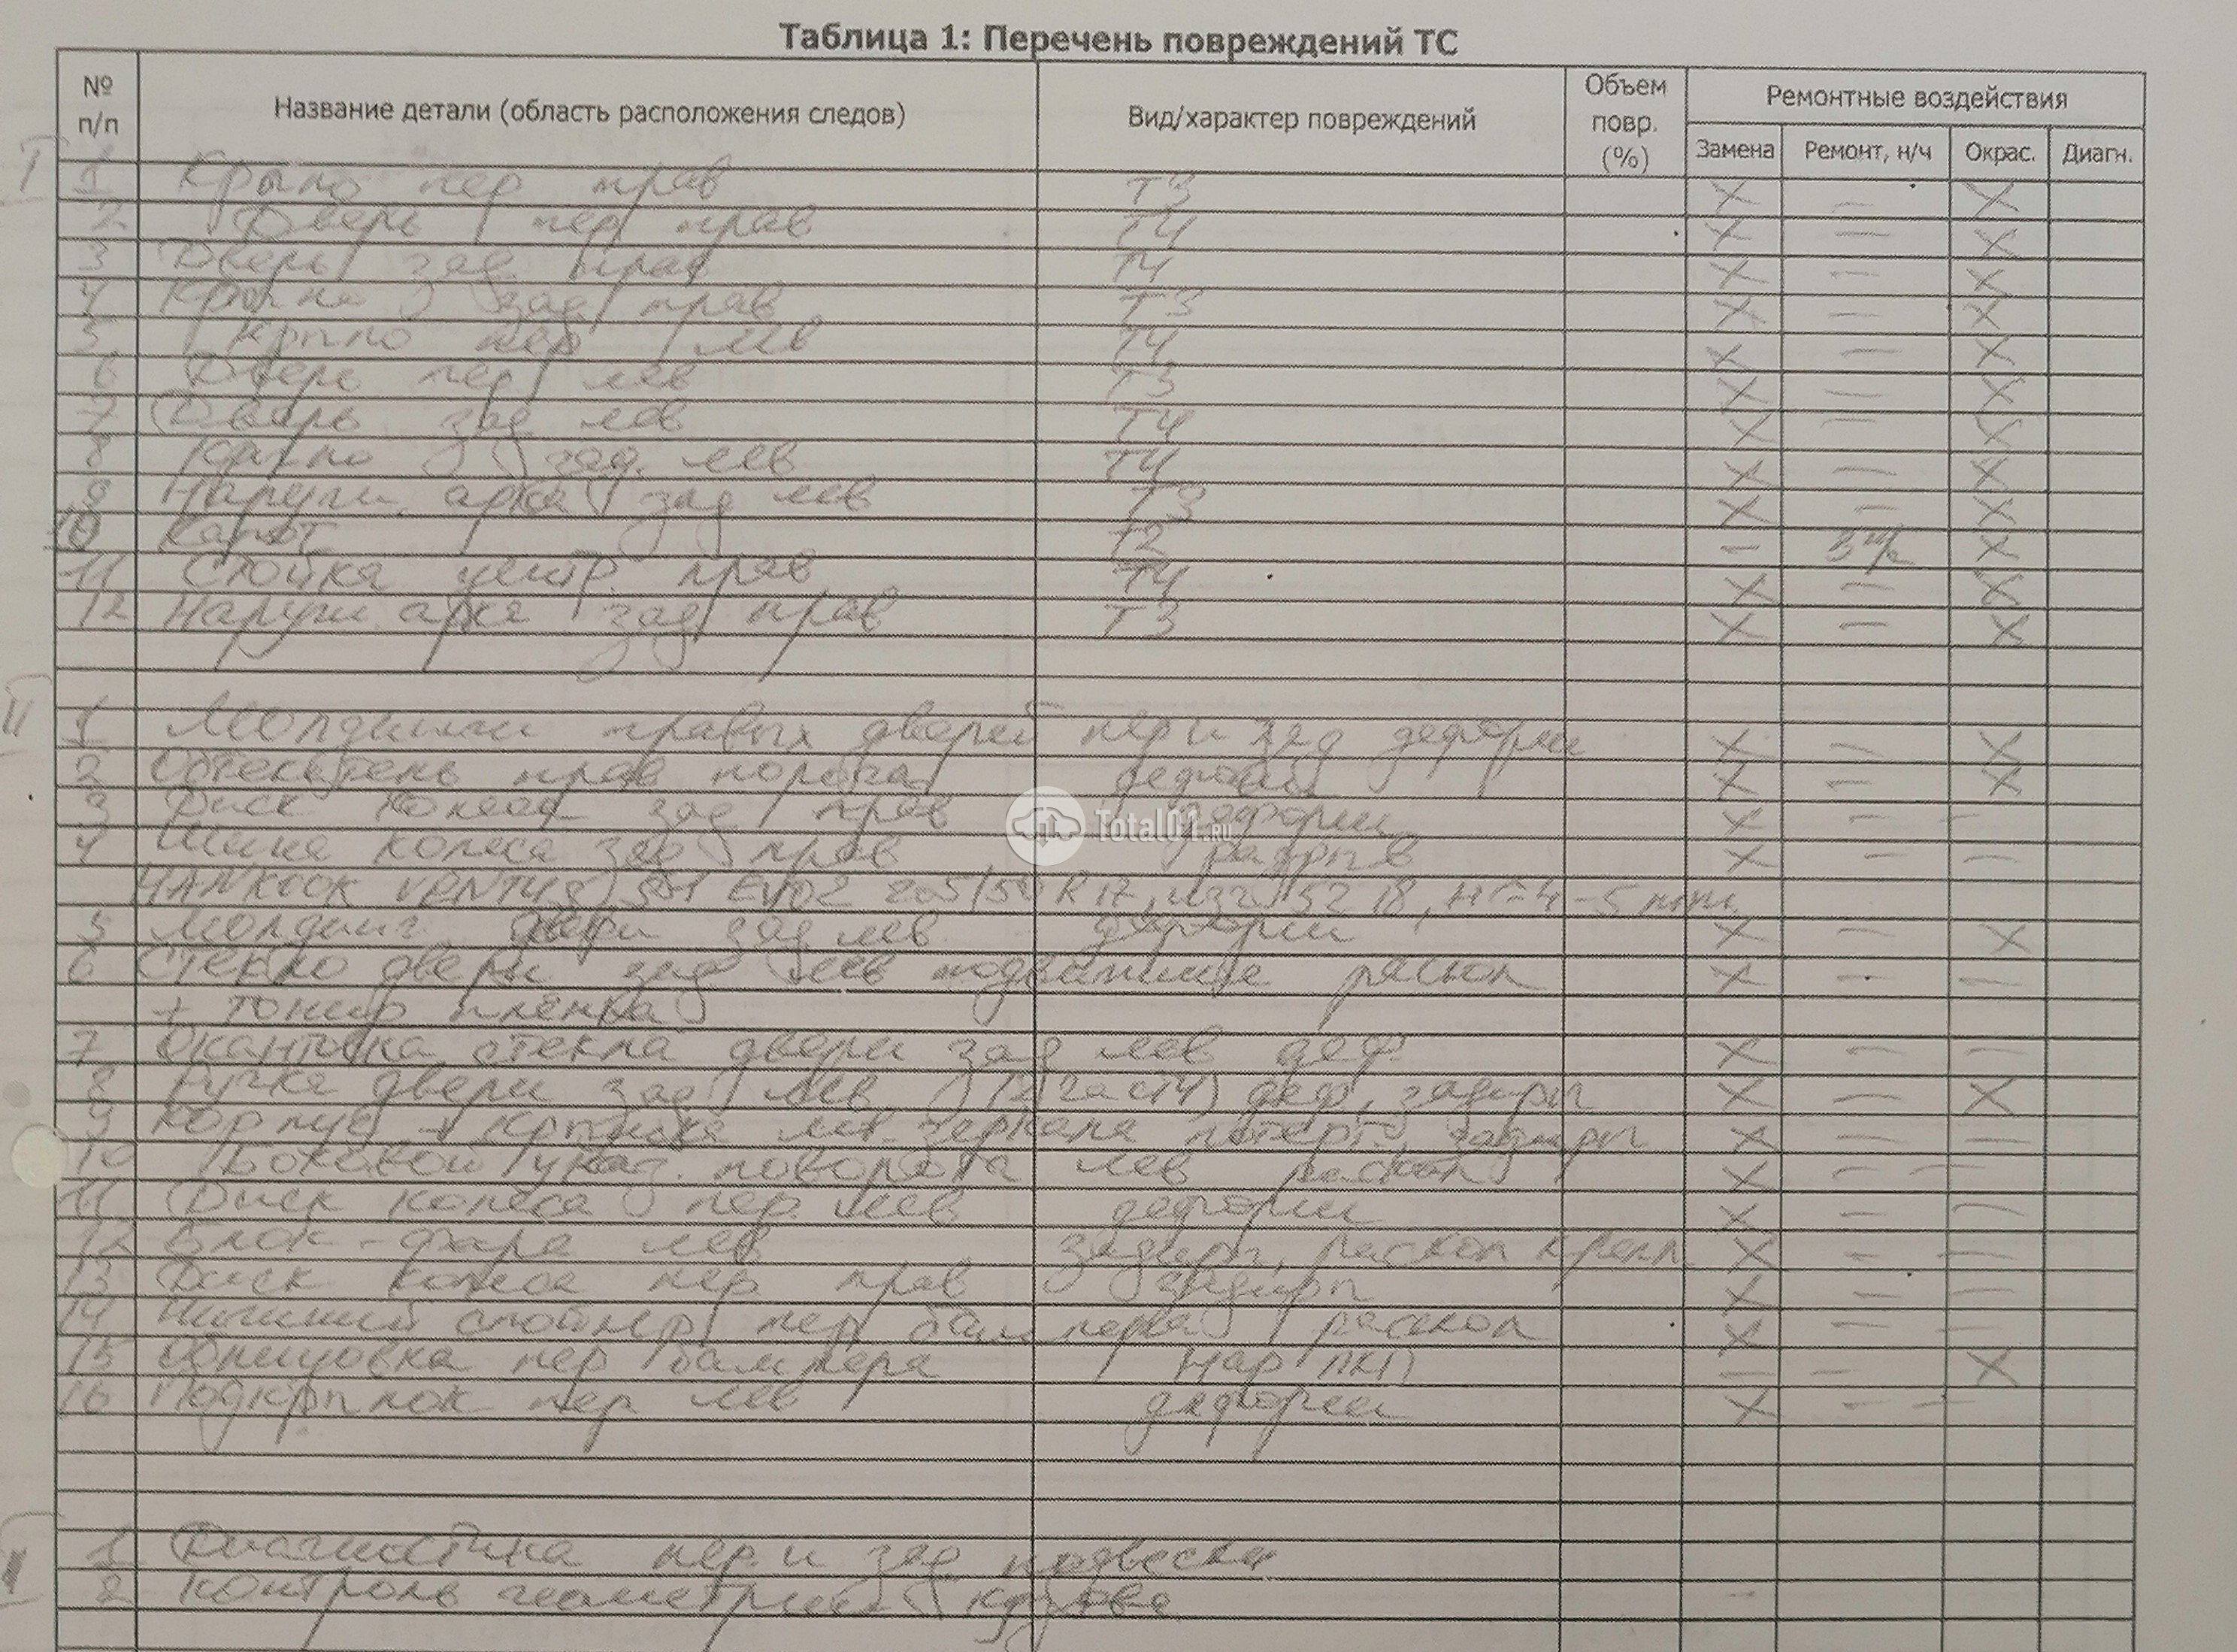 Таблица 1: Перечень повреждений ТС
№ п/п Название детали (область расположения следов) Вид/характер повреждений Объем повр. (%) Ремонтные воздействия
Замена Ремонт, н/ч Окрас. Диагн.
I 1 Крыло пер прав Т3 X — X
2 Дверь пер прав Т4 X — X
3 Дверь зад прав Т4 X — X
4 Крыло зад прав Т3 X — X
5 Крыло пер лев Т4 X — X
6 Дверь пер лев Т3 X — X
7 Дверь зад лев Т4 X — X
8 Крыло зад. лев Т4 X — X
9 Наружн. арка зад лев Т3 X — X
10 Капот Т2 — X
11 Стойка центр. прав Т4 X — X
12 Наружн арка зад прав Т3 X — X
II 1 Молдинги правых дверей пер и зад деформ X — X
2 Обтекатель прав порога X — X
3 Диск колеса зад прав деформ X — —
4 Шина колеса зад прав разрыв X — —
HANKOOK VENTUS S1 EVO2 205/50 R17, изг 5218, НГ-4-5 mm.
5 Молдинг двери зад лев деформ X — X
6 Стекло двери зад лев подвижное раскол X — —
+ тонир плёнка
7 Окантовка стекла двери зад лев деф. X — —
8 Ручка двери зад лев (2 части) деф, задиры X — X
9 Корпус + крышка лев. зеркала потерт., задиры X — —
10 Боковой указ. поворота лев раскол X — —
11 Диск колеса пер. лев деформ X — —
12 Блок-фара лев задиры, раскол крепл X — —
13 Диск колеса пер. прав задиры X — —
14 Нижний спойлер пер бампера раскол X — —
15 Облицовка пер бампера Нар ЛКП — — X
16 Подкрылок пер лев деформ X — —
1 Диагностика пер. и зад подвески
2 Контроль геометрии кузова
Total01.ru